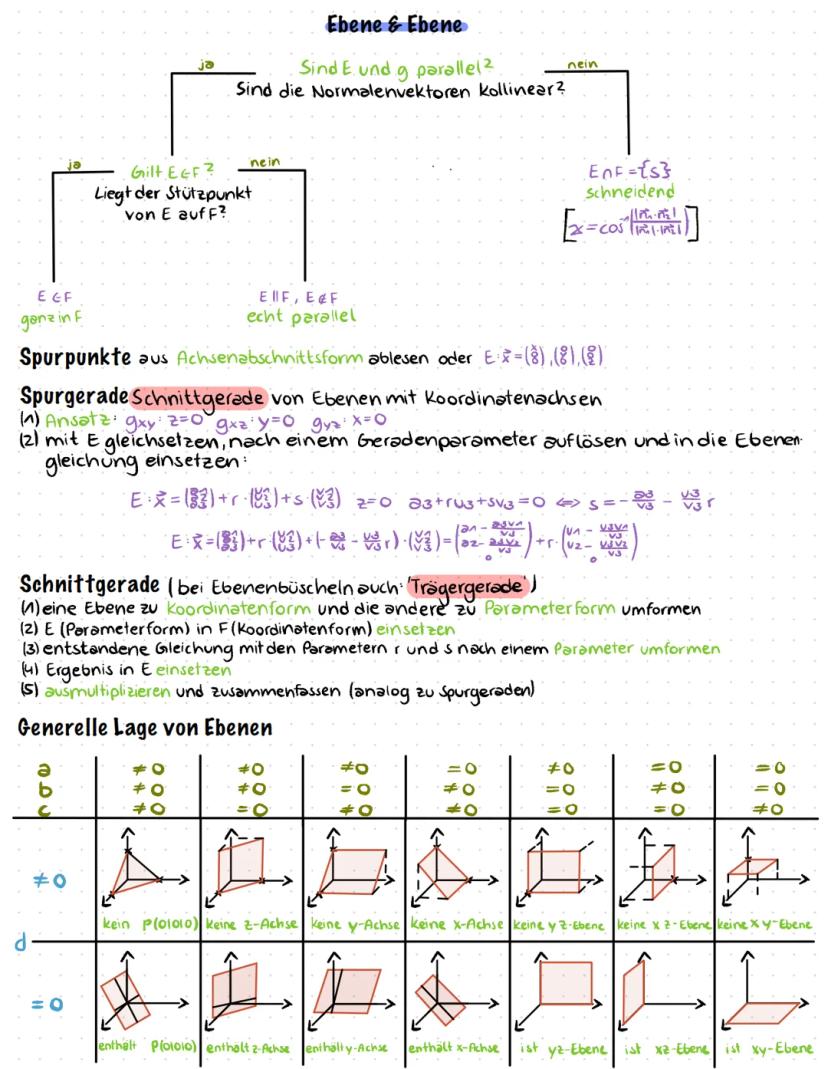 Ebene & Ebene
ja
Sind E und g parallel?
nein
Sind die Normalenvektoren kollinear?
ja
Gilt E∈F?
nein
Liegt der Stützpunkt
von E auf F?
E∩F={s}
schneidend
E∈F
ganz in F
E∥F, E∉F
echt parallel
Spurpunkte aus Achsenabschnittsform ablesen oder
Spurgerade Schnittgerade von Ebenen mit Koordinatenachsen
(1) Ansatz: gxy: z=0 gxz: y=0 gyz: x=0
(2) mit E gleichsetzen, nach einem Geradenparameter auflösen und in die Ebenen-
gleichung einsetzen:
z=0 a3+ru3+sv3=0 ⇔ s=-a3/v3 - u3/v3 r
Schnittgerade (bei Ebenenbüscheln auch: 'Trägergerade')
(1) eine Ebene zu Koordinatenform und die andere zu Parameterform umformen
(2) E (Parameterform) in F (Koordinatenform) einsetzen
(3) entstandene Gleichung mit den Parametern r und s nach einem Parameter umformen
(4) Ergebnis in E einsetzen
(5) ausmultiplizieren und zusammenfassen (analog zu Spurgeraden)
Generelle Lage von Ebenen
a ≠0 ≠0 ≠0 =0 ≠0 =0 =0
b ≠0 ≠0 =0 ≠0 =0 ≠0 =0
c ≠0 =0 ≠0 ≠0 =0 =0 ≠0
≠0
kein P(0|0|0) keine z-Achse keine y-Achse keine x-Achse keine yz-Ebene keine xz-Ebene keine xy-Ebene
d
=0
enthält P(0|0|0) enthält z-Achse enthält y-Achse enthält x-Achse ist yz-Ebene ist xz-Ebene ist xy-Ebene